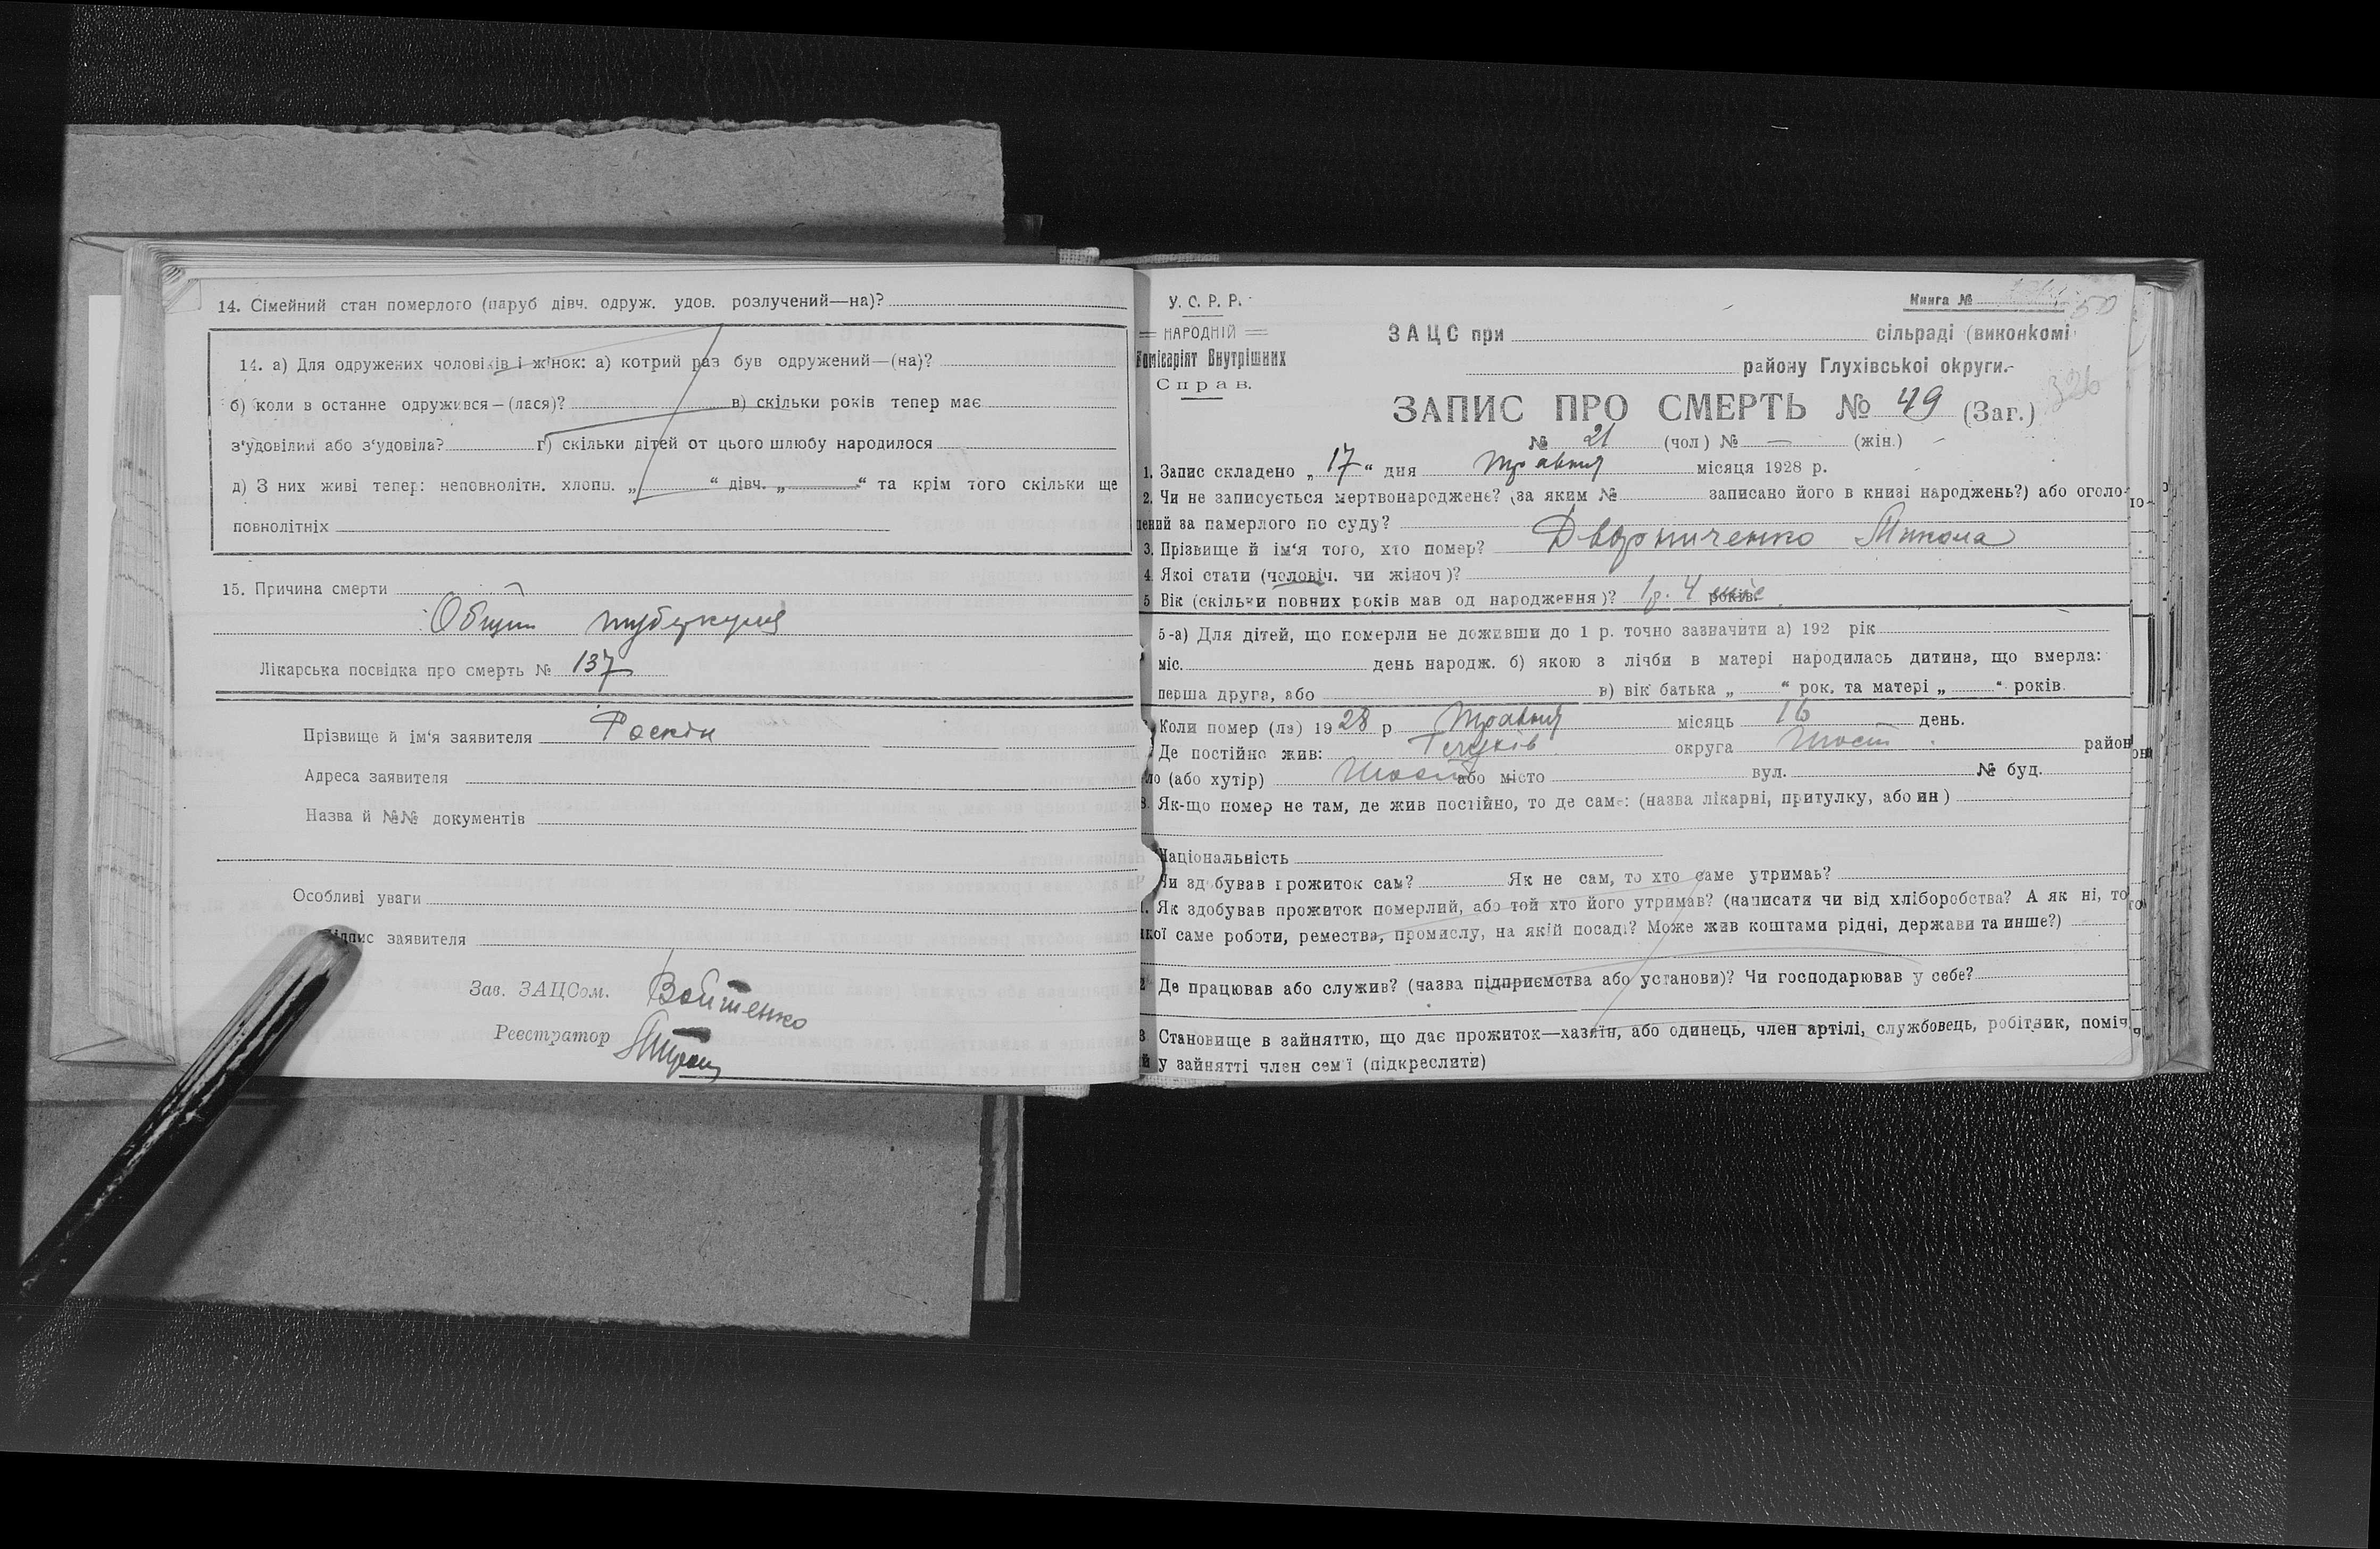 14. Сімейний стан померлого (паруб дівч. одруж. удов. розлучений—на)?
14. а) Для одружених чоловіків і жінок: а) котрий раз був одружений—(на)?
б) коли в останнє одружився—(лася)? в) скільки років тепер має
з'удовілий або з'удовіла? г) скільки дітей от цього шлюбу народилося
д) З них живі тепер: неповнолітн. хлопц. „ “ дівч. „ “ та крім того скільки ще
повнолітніх
15. Причина смерти
Общий туберкулез
Лікарська посвідка про смерть № 137
Прізвище й ім'я заявителя Роскін
Адреса заявителя
Назва й №№ документів
Особливі уваги
підпис заявителя
Зав. ЗАЦСом. Войтенко
Реєстратор
У. С. Р. Р. Книга № 50
НАРОДНІЙ
Комісаріят Внутрішних
Справ.
ЗАЦС при сільраді (виконкомі
району Глухівської округи.
326
ЗАПИС ПРО СМЕРТЬ № 49 (Заг.)
№ 21 (чол) № — (жін.)
1. Запис складено „17“ дня травня місяця 1928 р.
2. Чи не записується мертвонароджене? (за яким № записано його в книзі народжень?) або оголо-
шений за памерлого по суду?
3. Прізвище й ім'я того, хто помер? Дворниченко Микола
4. Якої стати (чоловіч. чи жіноч)?
5 Вік (скільки повних років мав од народження)? 1 р. 4 міс років.
5-а) Для дітей, що померли не доживши до 1 р. точно зазначити а) 192 рік
міс. день народж. б) якою з лічби в матері народилась дитина, що вмерла:
перша друга, або в) вік батька „ “ рок. та матері „ “ років.
Коли помер (ла) 1928 р травня місяць 16 день.
Де постійно жив: Глухів округа Шост район
ло (або хутір) Шостка або місто вул. № буд.
8. Як-що помер не там, де жив постійно, то де саме: (назва лікарні, притулку, або ин)
Національність
Чи здобував прожиток сам? Як не сам, то хто саме утримав?
Як здобував прожиток померлий, або той хто його утримав? (написати чи від хліборобства? А як ні, то
якої саме роботи, ремества, промислу, на якій посаді? Може жив коштами рідні, держави та инше?)
Де працював або служив? (назва підприємства або установи)? Чи господарював у себе?
Становище в зайняттю, що дає прожиток—хазяїн, або одинець, член артілі, службовець, робітник, поміч
й у зайнятті член сем'ї (підкреслити)